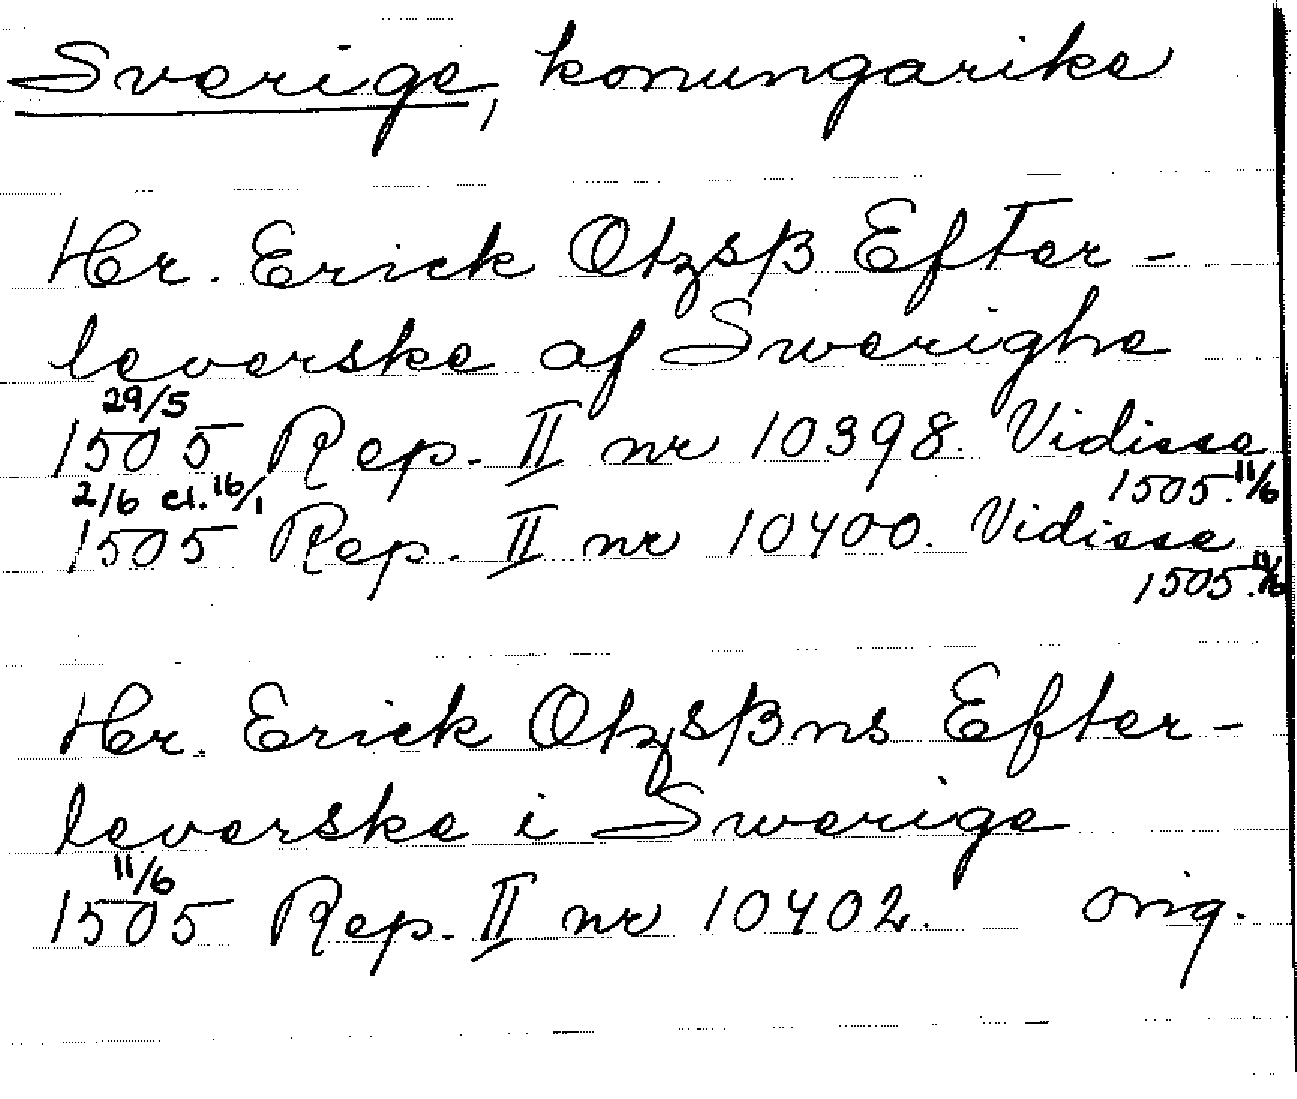 Sverige, konungarike
Hr. Erick Otzsß Efter-
leverske af Swerighe
29/5
1505 Rep. II nr 10398. Vidisse
1505. 11/6
2/6 cl. 16/1
1505 Rep. II nr 10400. Vidisse
1505. 11/6
Hr. Erick Otzsßns Efter-
leverske i Swerige
11/6
1505 Rep. II nr 10402. orig.